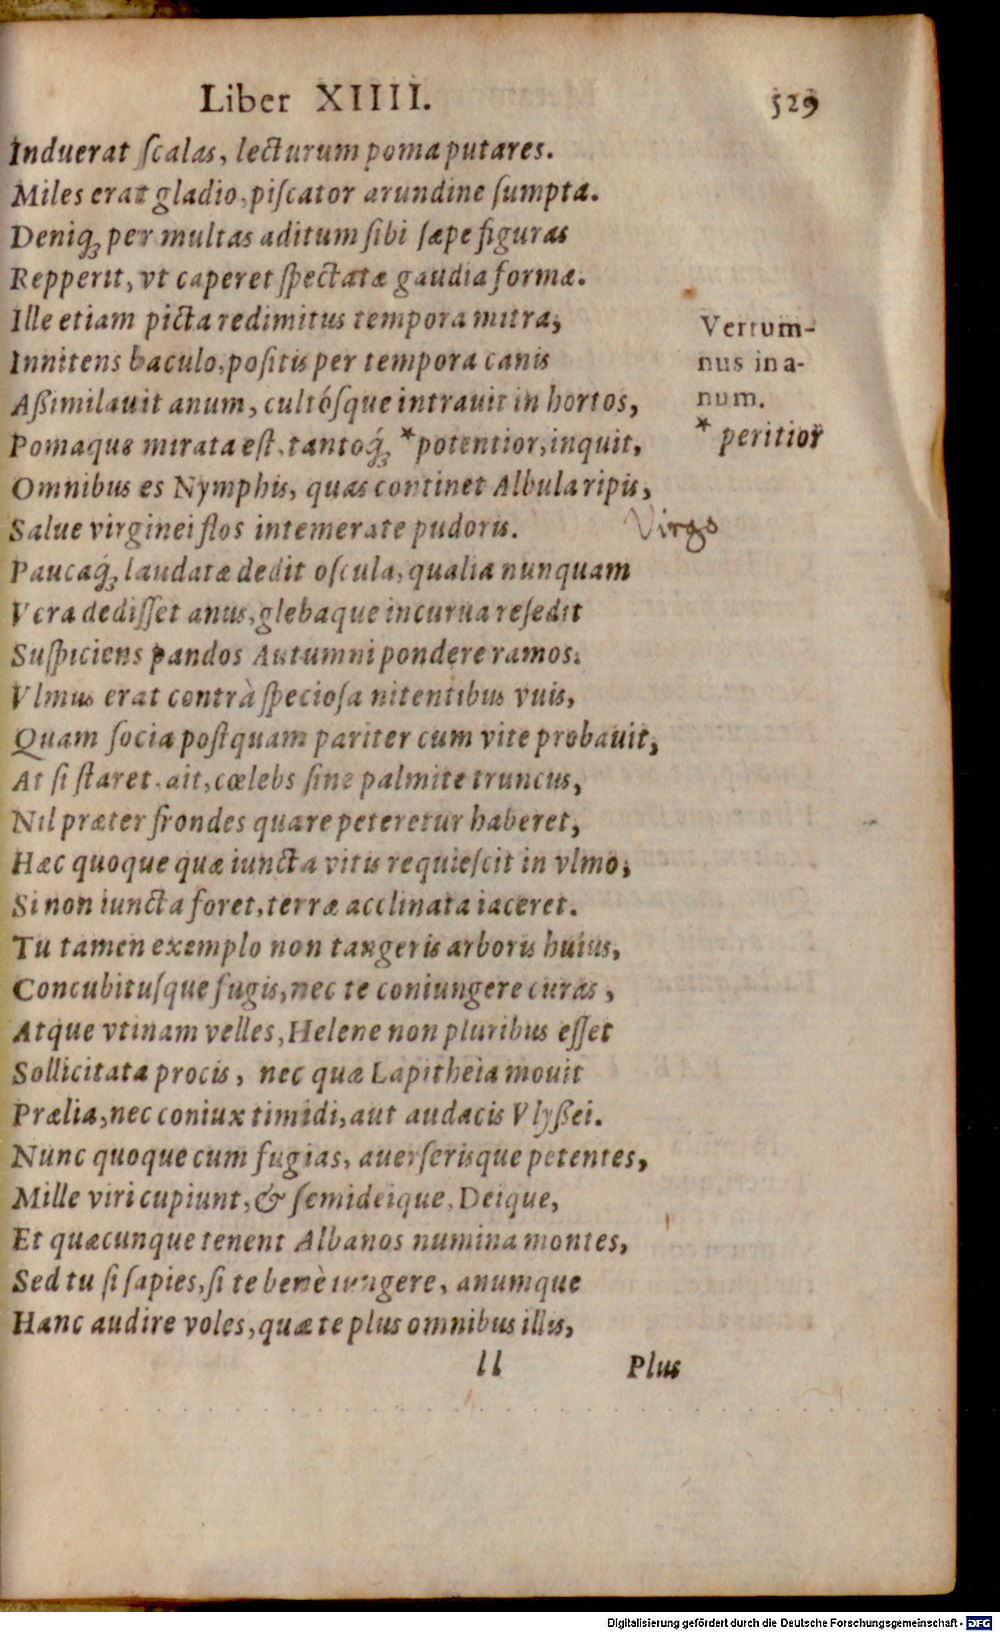 Liber XIIII. 529
Induerat ſcalas, lecturum poma putares.
Miles erat gladio, piſcator arundine ſumpta.
Deniq́ꝫ per multas aditum ſibi ſæpe figuras
Repperit, vt caperet ſpectatæ gaudia formæ.
Ille etiam picta redimitus tempora mitra,
Innitens baculo, poſitis per tempora canis
Aßimilauit anum, cultósque intrauit in hortos,
Pomaque mirata eſt, tantoq́ꝫ *potentior, inquit,
Omnibus es Nymphis, quas continet Albula ripis,
Salue virginei flos intemerate pudoris.
Paucaq́ꝫ laudatæ dedit oſcula, qualia nunquam
Vera dediſſet anus, glebaque incurua reſedit
Suſpiciens pandos Autumni pondere ramos.
Vlmus erat contrà ſpecioſa nitentibus vuis,
Quam ſocia poſtquam pariter cum vite probauit,
At ſi ſtaret, ait, cœlebs ſine palmite truncus,
Nil præter frondes quare peteretur haberet,
Hæc quoque quæ iuncta vitis requieſcit in vlmo,
Si non iuncta foret, terræ acclinata iaceret.
Tu tamen exemplo non tangeris arboris huius,
Concubituſque fugis, nec te coniungere curas,
Atque vtinam velles, Helene non pluribus eſſet
Sollicitata procis, nec quæ Lapitheia mouit
Prælia, nec coniux timidi, aut audacis Vlyßei.
Nunc quoque cum fugias, auerſerisque petentes,
Mille viri cupiunt, & ſemideique, Deique,
Et quæcunque tenent Albanos numina montes,
Sed tu ſi ſapies, ſi te benè iungere, anumque
Hanc audire voles, quæ te plus omnibus illis,
ll Plus
Vertum-
nus in a-
num.
* peritior
Virgo
Digitalisierung gefördert durch die Deutsche Forschungsgemeinschaft - DFG